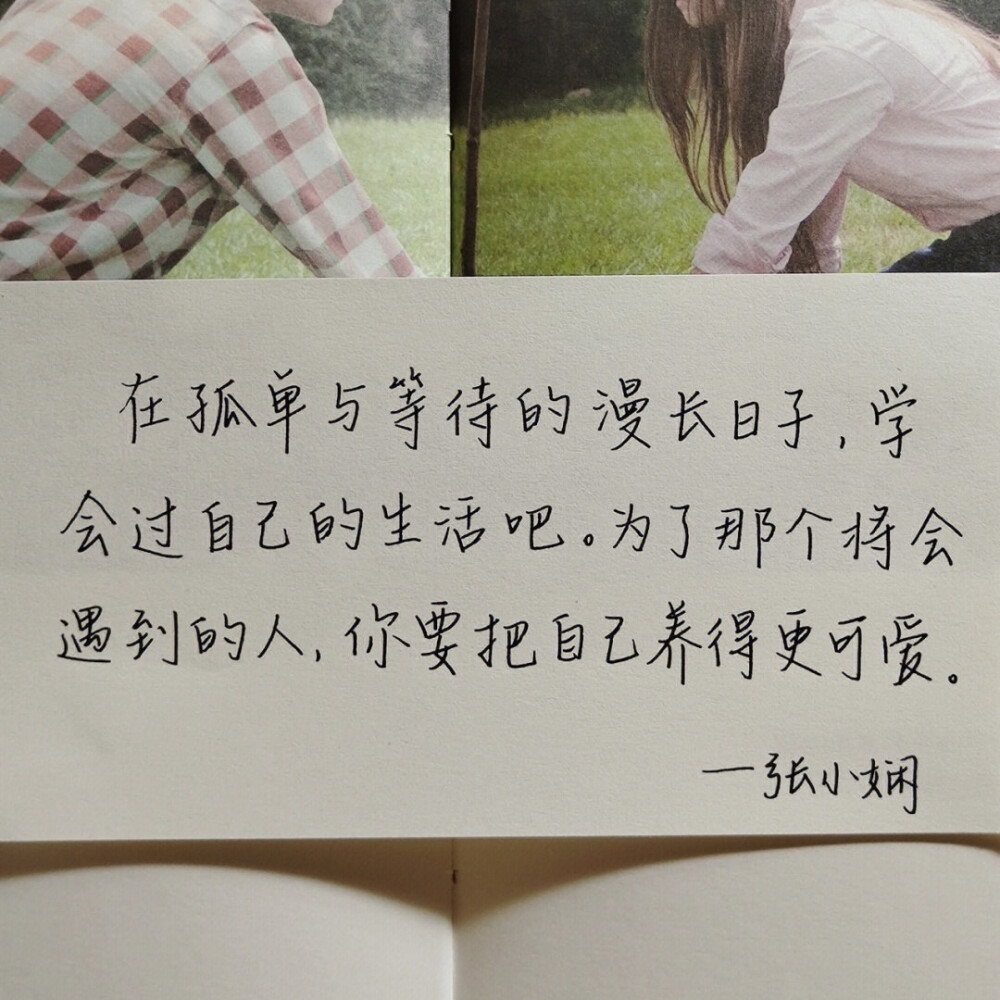 在孤单与等待的漫长日子,学
会过自己的生活吧。为了那个将会
遇到的人,你要把自己养得更可爱。
—张小娴